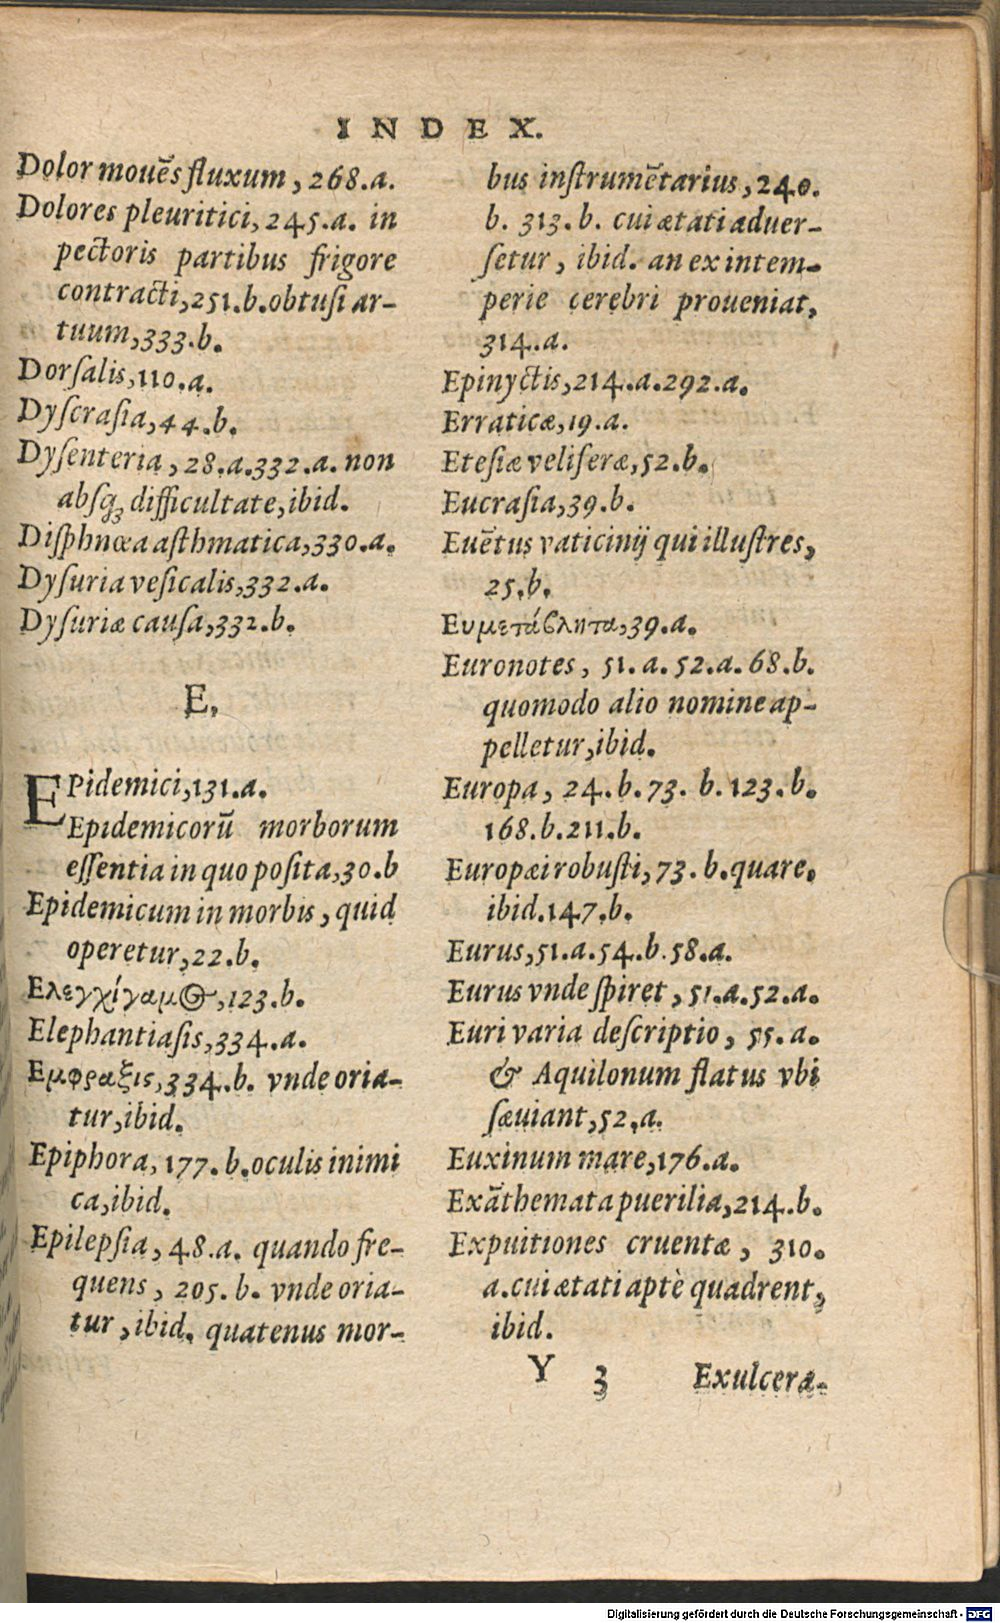 INDEX.
Dolor mouēs fluxum, 268.a.
Dolores pleuritici, 245.a. in
pectoris partibus frigore
contracti, 251.b. obtusi ar-
tuum, 333.b.
Dorſalis, 110.a.
Dyſcraſia, 44.b.
Dyſenteria, 28.a. 332.a. non
abſq; difficultate, ibid.
Diſphnœa aſthmatica, 330.a.
Dyſuria veſicalis, 332.a.
Dyſuriæ cauſa, 332.b.
E.
EPidemici, 131.a.
Epidemicorū morborum
eſſentia in quo poſita, 30.b
Epidemicum in morbis, quid
operetur, 22.b.
Ελεγχίγαμος, 123.b.
Elephantiaſis, 334.a.
Εμφραξις, 334.b. vnde oria-
tur, ibid.
Epiphora, 177.b. oculis inimi
ca, ibid.
Epilepſia, 48.a. quando fre-
quens, 205.b. vnde oria-
tur, ibid. quatenus mor-
bus inſtrumētarius, 240.
b. 313.b. cui ætati aduer-
ſetur, ibid. an ex intem-
perie cerebri proueniat,
314.a.
Epinyctis, 214.a. 292.a.
Erraticæ, 19.a.
Eteſiæ veliferæ, 52.b.
Eucraſia, 39.b.
Euētus vaticinij qui illuſtres,
25.b.
Ευμετάβλητα, 39.a.
Euronotes, 51.a. 52.a. 68.b.
quomodo alio nomine ap-
pelletur, ibid.
Europa, 24.b. 73.b. 123.b.
168.b. 211.b.
Europæi robuſti, 73.b. quare,
ibid. 147.b.
Eurus, 51.a. 54.b. 58.a.
Eurus vnde ſpiret, 51.a. 52.a.
Euri varia deſcriptio, 55.a.
& Aquilonum flatus vbi
ſæuiant, 52.a.
Euxinum mare, 176.a.
Exāthemata puerilia, 214.b.
Expuitiones cruentæ, 310.
a. cui ætati aptè quadrent,
ibid.
Y 3 Exulcera-
Digitalisierung gefördert durch die Deutsche Forschungsgemeinschaft - DFG